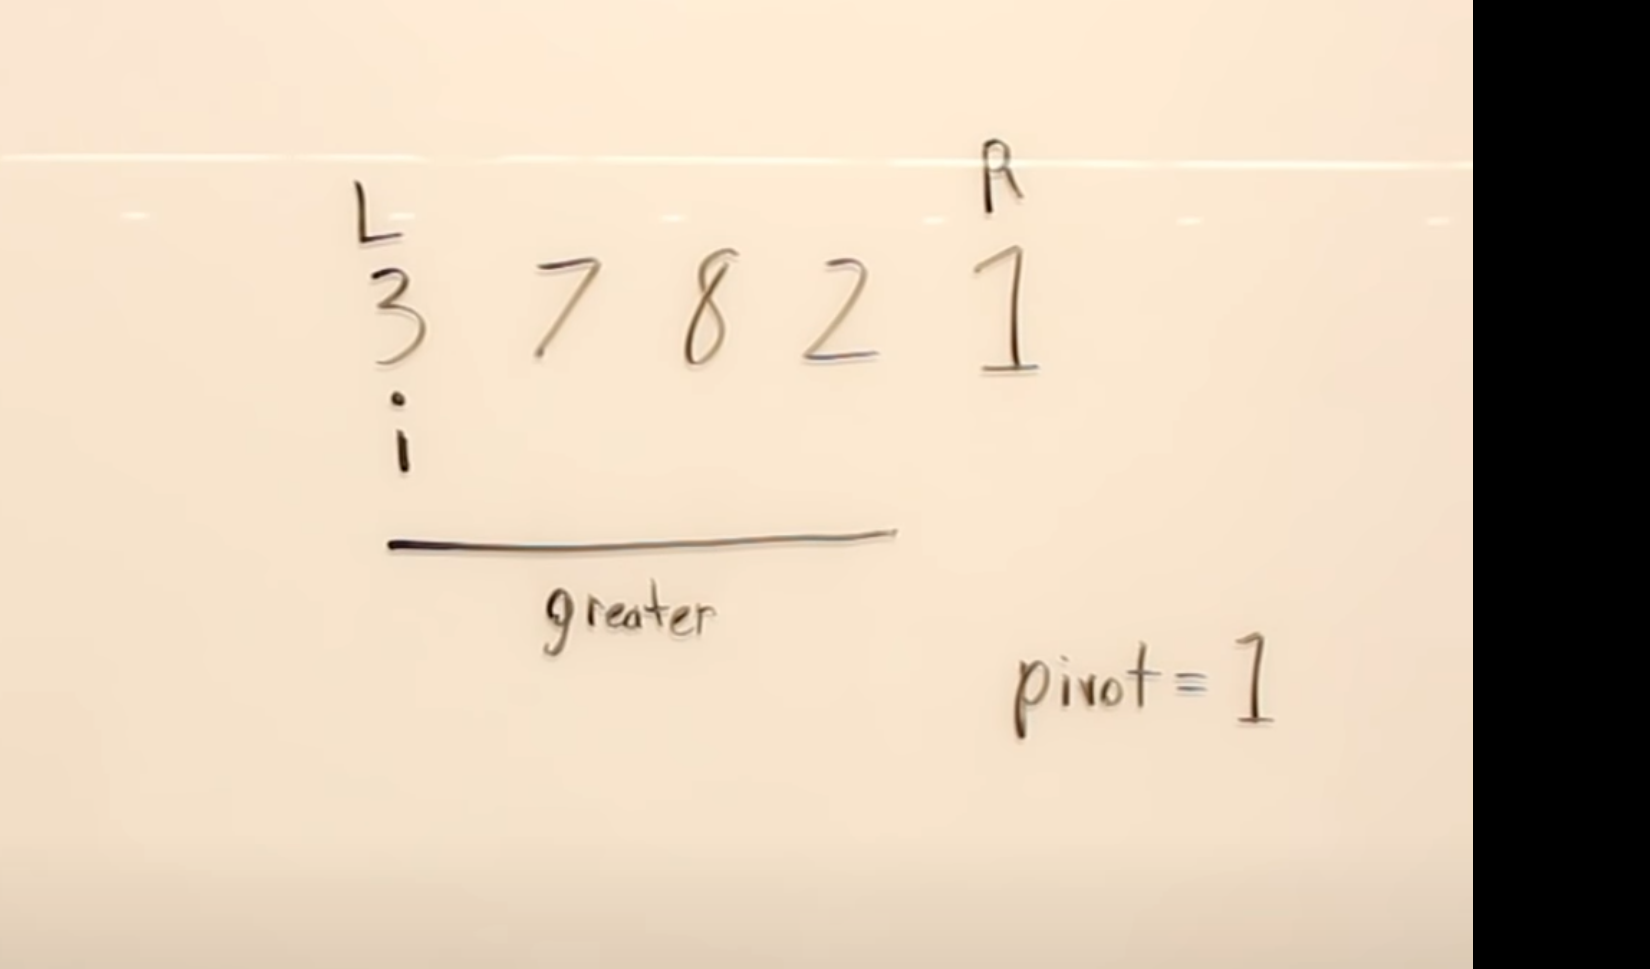 L R
3 7 8 2 1
i
greater
pivot = 1